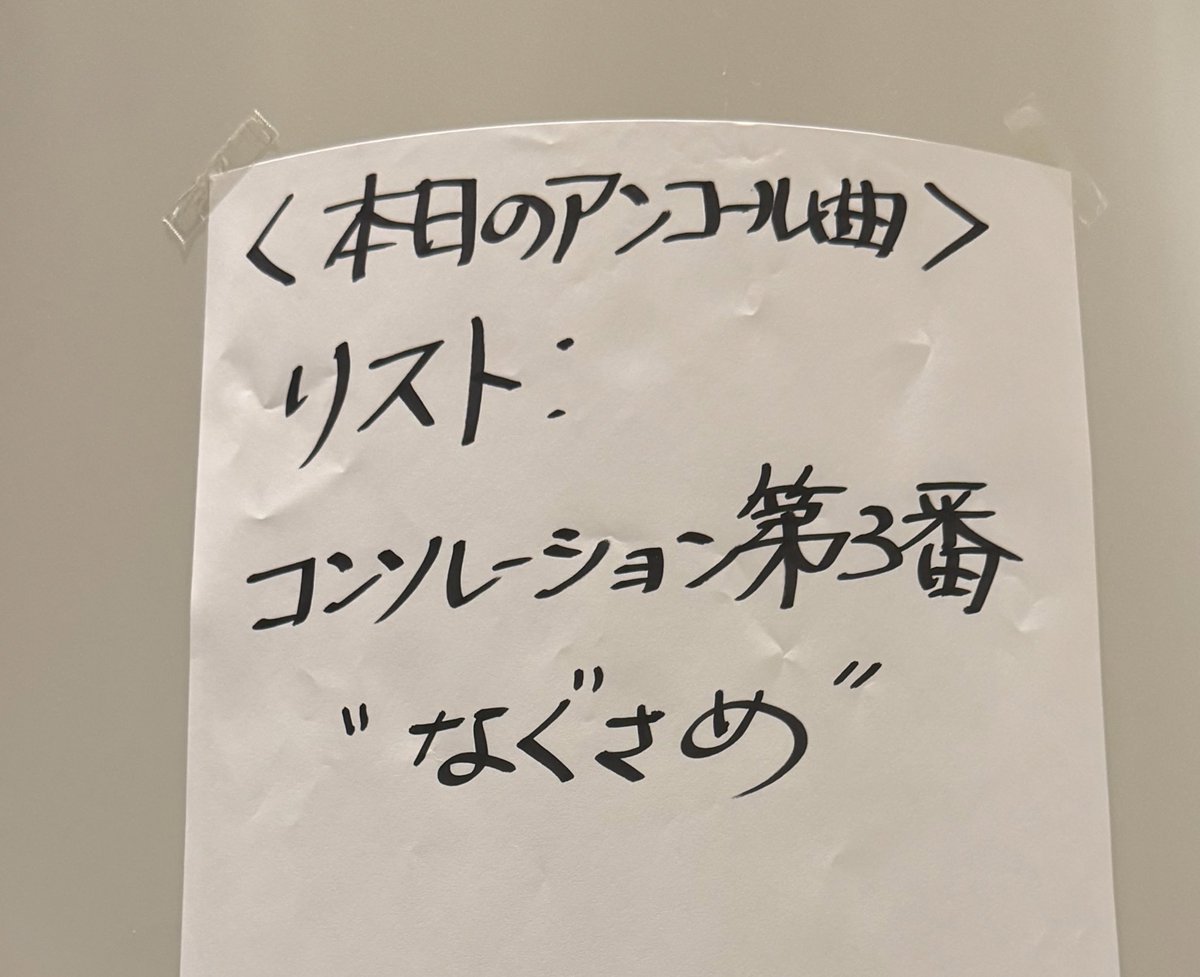 〈本日のアンコール曲〉
リスト:
コンソレーション第3番
"なぐさめ"